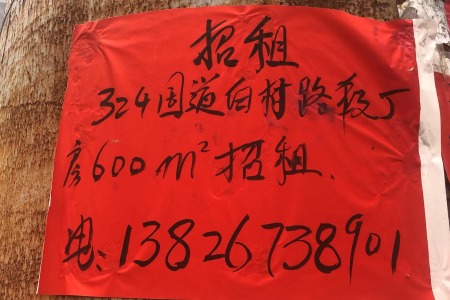 招租
324国道白村路段厂
房600m²招租.
电:13826738901